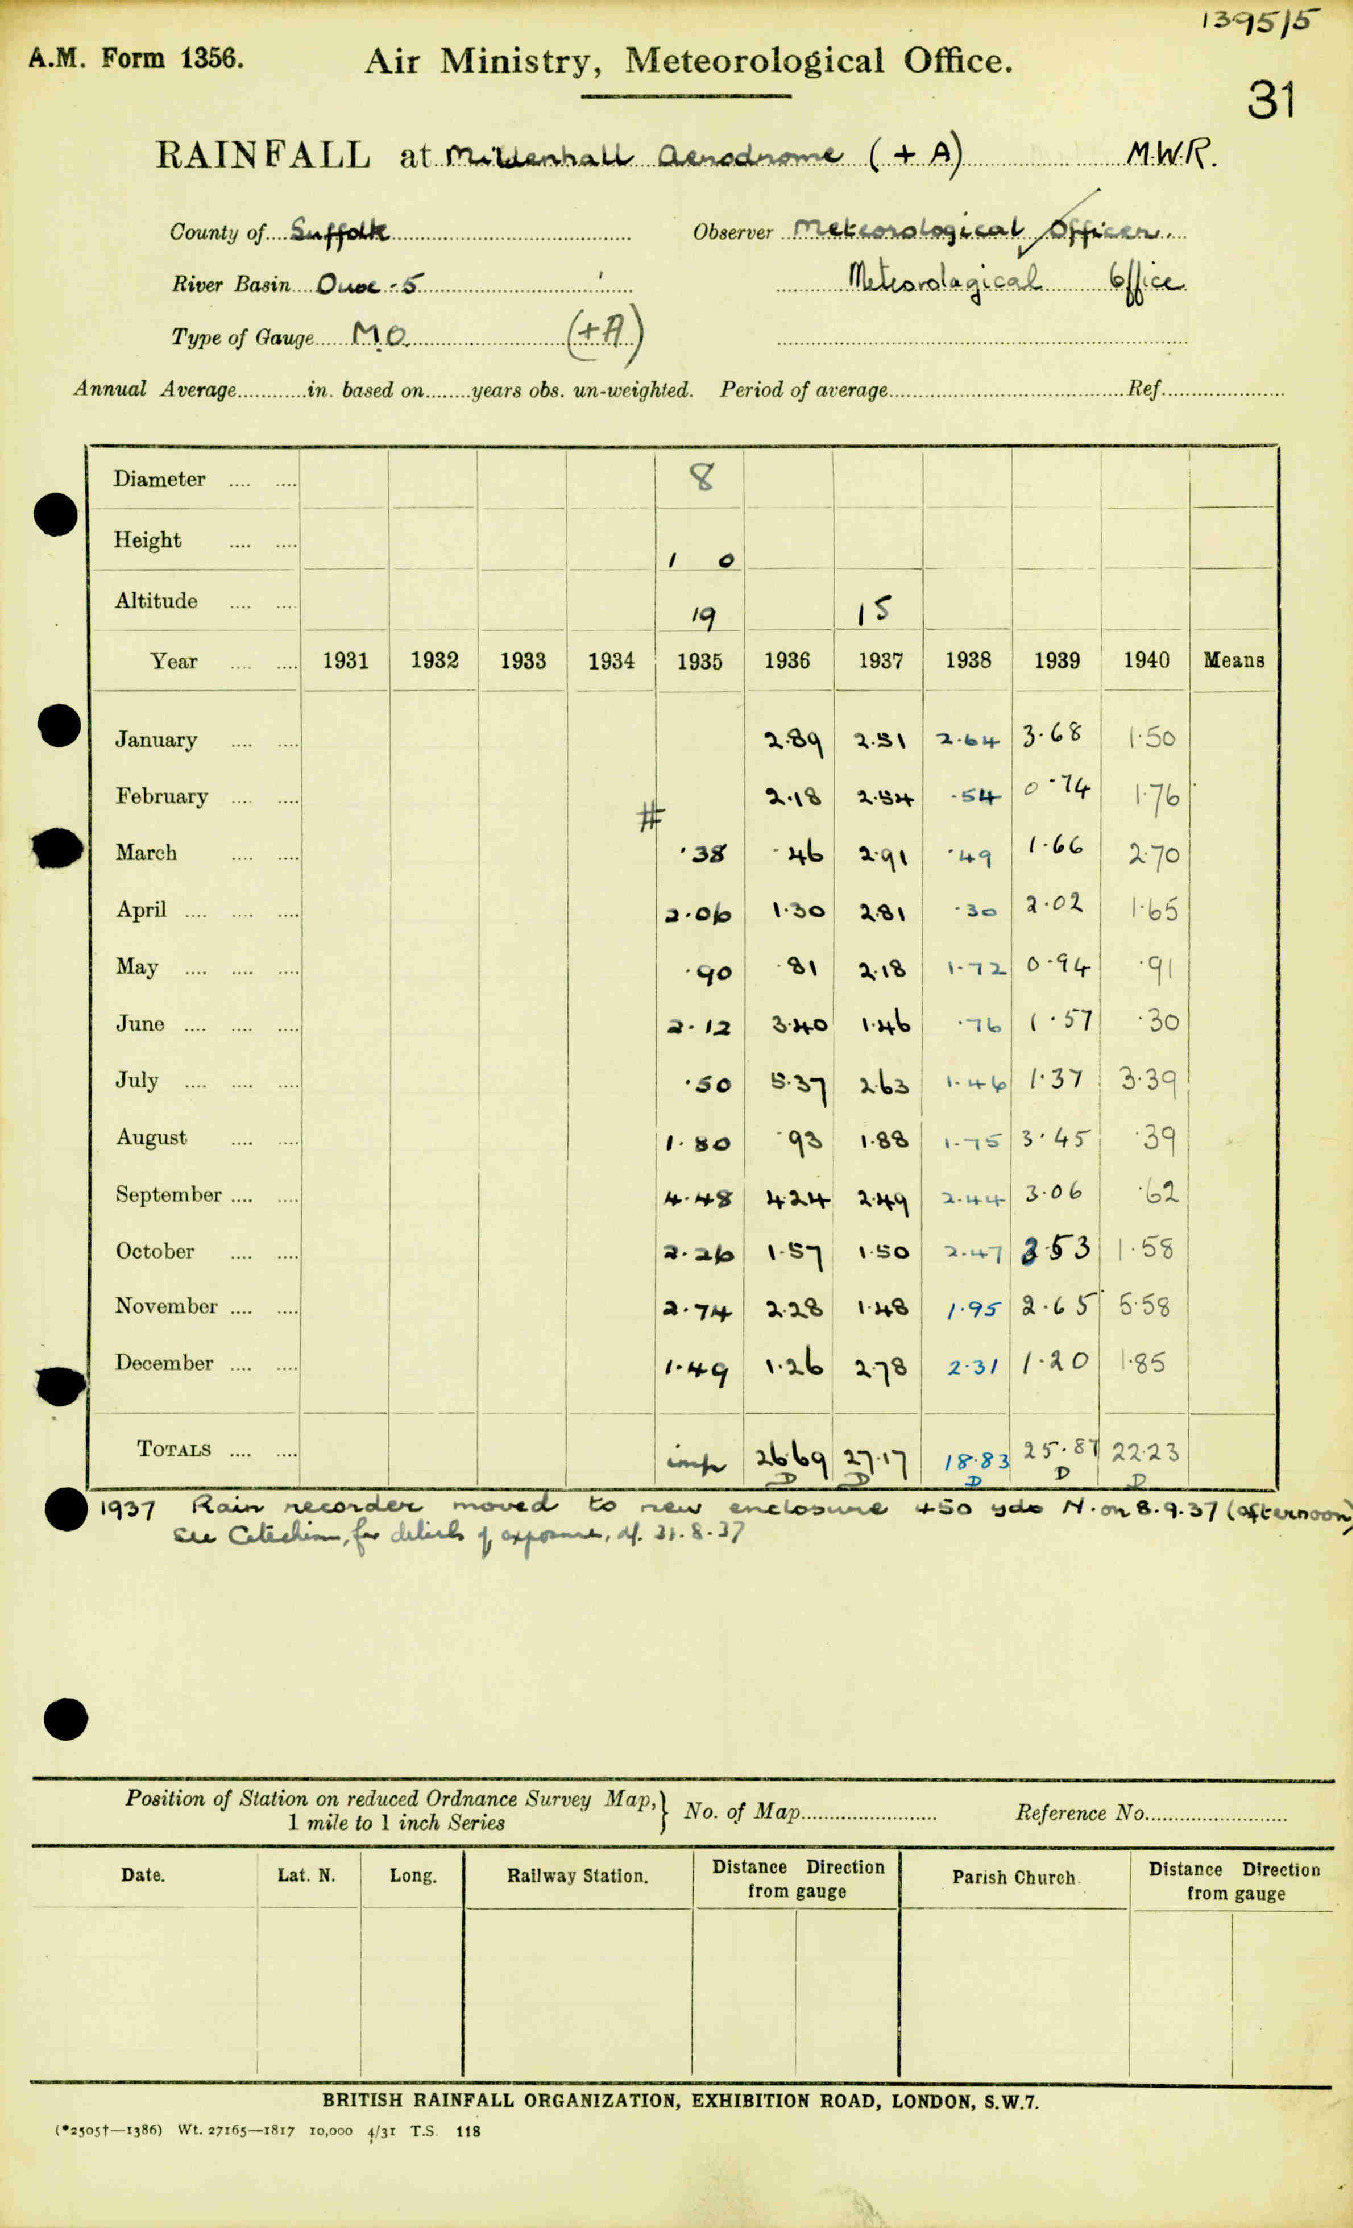 1395/5
A.M. Form 1356. Air Ministry, Meteorological Office.
31
RAINFALL at Mildenhall Aerodrome (+ A) M.W.R.
County of Suffolk Observer Meteorological Officer.
River Basin Ouse - 5 Meteorological Office
Type of Gauge M.O. (+A)
Annual Average in. based on years obs. un-weighted. Period of average Ref.
Diameter 8
Height 1 0
Altitude 19 15
Year 1931 1932 1933 1934 1935 1936 1937 1938 1939 1940 Means
January 2.89 2.51 2.64 3.68 1.50
February # 2.18 2.54 .54 0.74 1.76
March .38 .46 2.91 .49 1.66 2.70
April 2.06 1.30 2.81 .30 2.02 1.65
May .90 .81 2.18 1.72 0.94 .91
June 2.12 3.40 1.46 .76 1.57 .30
July .50 5.37 2.63 1.46 1.37 3.39
August 1.80 .93 1.88 1.75 3.45 .39
September 4.48 4.24 2.49 2.44 3.06 .62
October 2.26 1.57 1.50 2.47 3.53 1.58
November 2.74 2.28 1.48 1.95 2.65 5.58
December 1.49 1.26 2.78 2.31 1.20 1.85
TOTALS imp 26.69 27.17 18.83 25.87 22.23
D D D D D
1937 Rain recorder moved to new enclosure 450 yds N. on 8.9.37 (afternoon)
See for details of exposure, 31.8.37
Position of Station on reduced Ordnance Survey Map, } No. of Map Reference No.
1 mile to 1 inch Series
Date. Lat. N. Long. Railway Station. Distance Direction from gauge Parish Church Distance Direction from gauge
BRITISH RAINFALL ORGANIZATION, EXHIBITION ROAD, LONDON, S.W.7.
(*2505†—1386) Wt. 27165—1817 10,000 4/31 T.S. 118